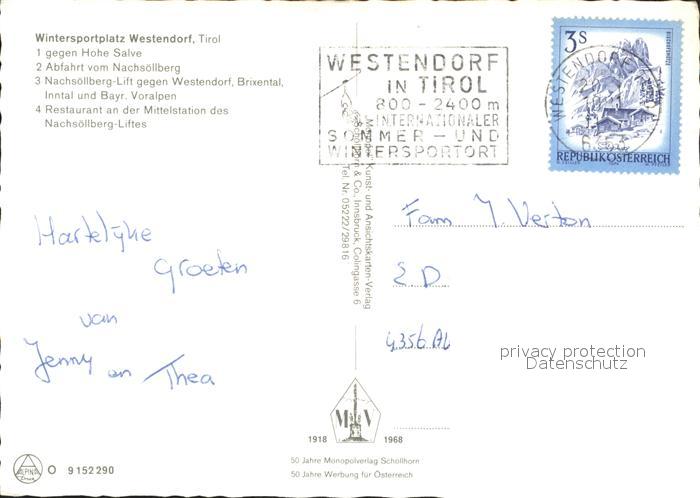 Wintersportplatz Westendorf, Tirol
1 gegen Hohe Salve
2 Abfahrt vom Nachsöllberg
3 Nachsöllberg-Lift gegen Westendorf, Brixental,
Inntal und Bayr. Voralpen
4 Restaurant an der Mittelstation des
Nachsöllberg-Liftes
WESTENDORF
IN TIROL
800-2400m
INTERNATIONALER
SOMMER-UND
WINTERSPORTORT
3S
WESTENDORF
REPUBLIK ÖSTERREICH
Kunst- und Ansichtskarten-Verlag
& Co., Innsbruck, Colingasse 6
Tel. Nr. 05222/29816
Hartelijke
Groeten
van
Jenny en
Thea
Fam J. Verton
2 D
4356 AL
privacy protection
Datenschutz
M V
1918 1968
50 Jahre Monopolverlag Schollhorn
50 Jahre Werbung für Österreich
ALPINA
O 9152290